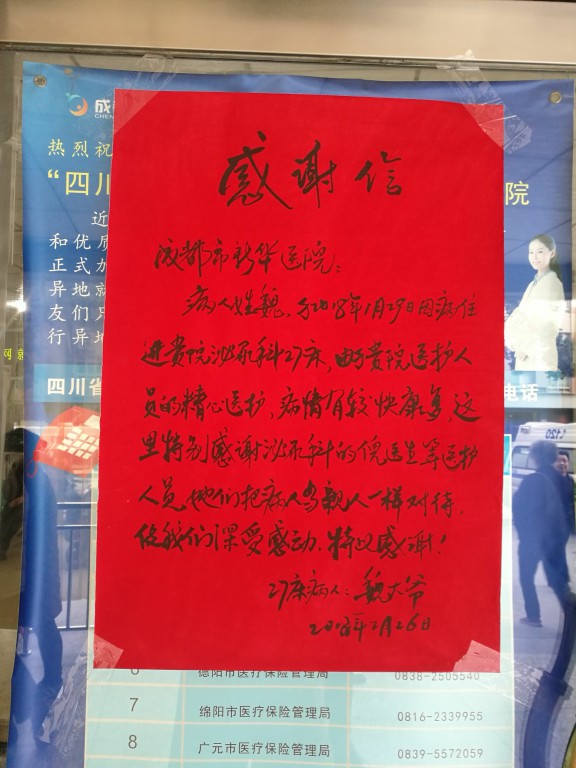 成
CHEN
热烈祝
“四川
院
近
和优质
正式加
异地就
友们只
行异地
网
四川省
电话
120
感谢信
成都市新华医院:
病人姓魏,于2018年1月29日因病住
进贵院泌尿科27床,由于贵院医护人
员的精心医护,病情有较快康复,这
里特别感谢泌尿科的倪医生等医护
人员,她们把病人当亲人一样对待,
使我们深受感动,特义感谢!
27床病人:魏大爷
2018年2月26日
6 德阳市医疗保险管理局 0838-2505540
7 绵阳市医疗保险管理局 0816-2339955
8 广元市医疗保险管理局 0839-5572059